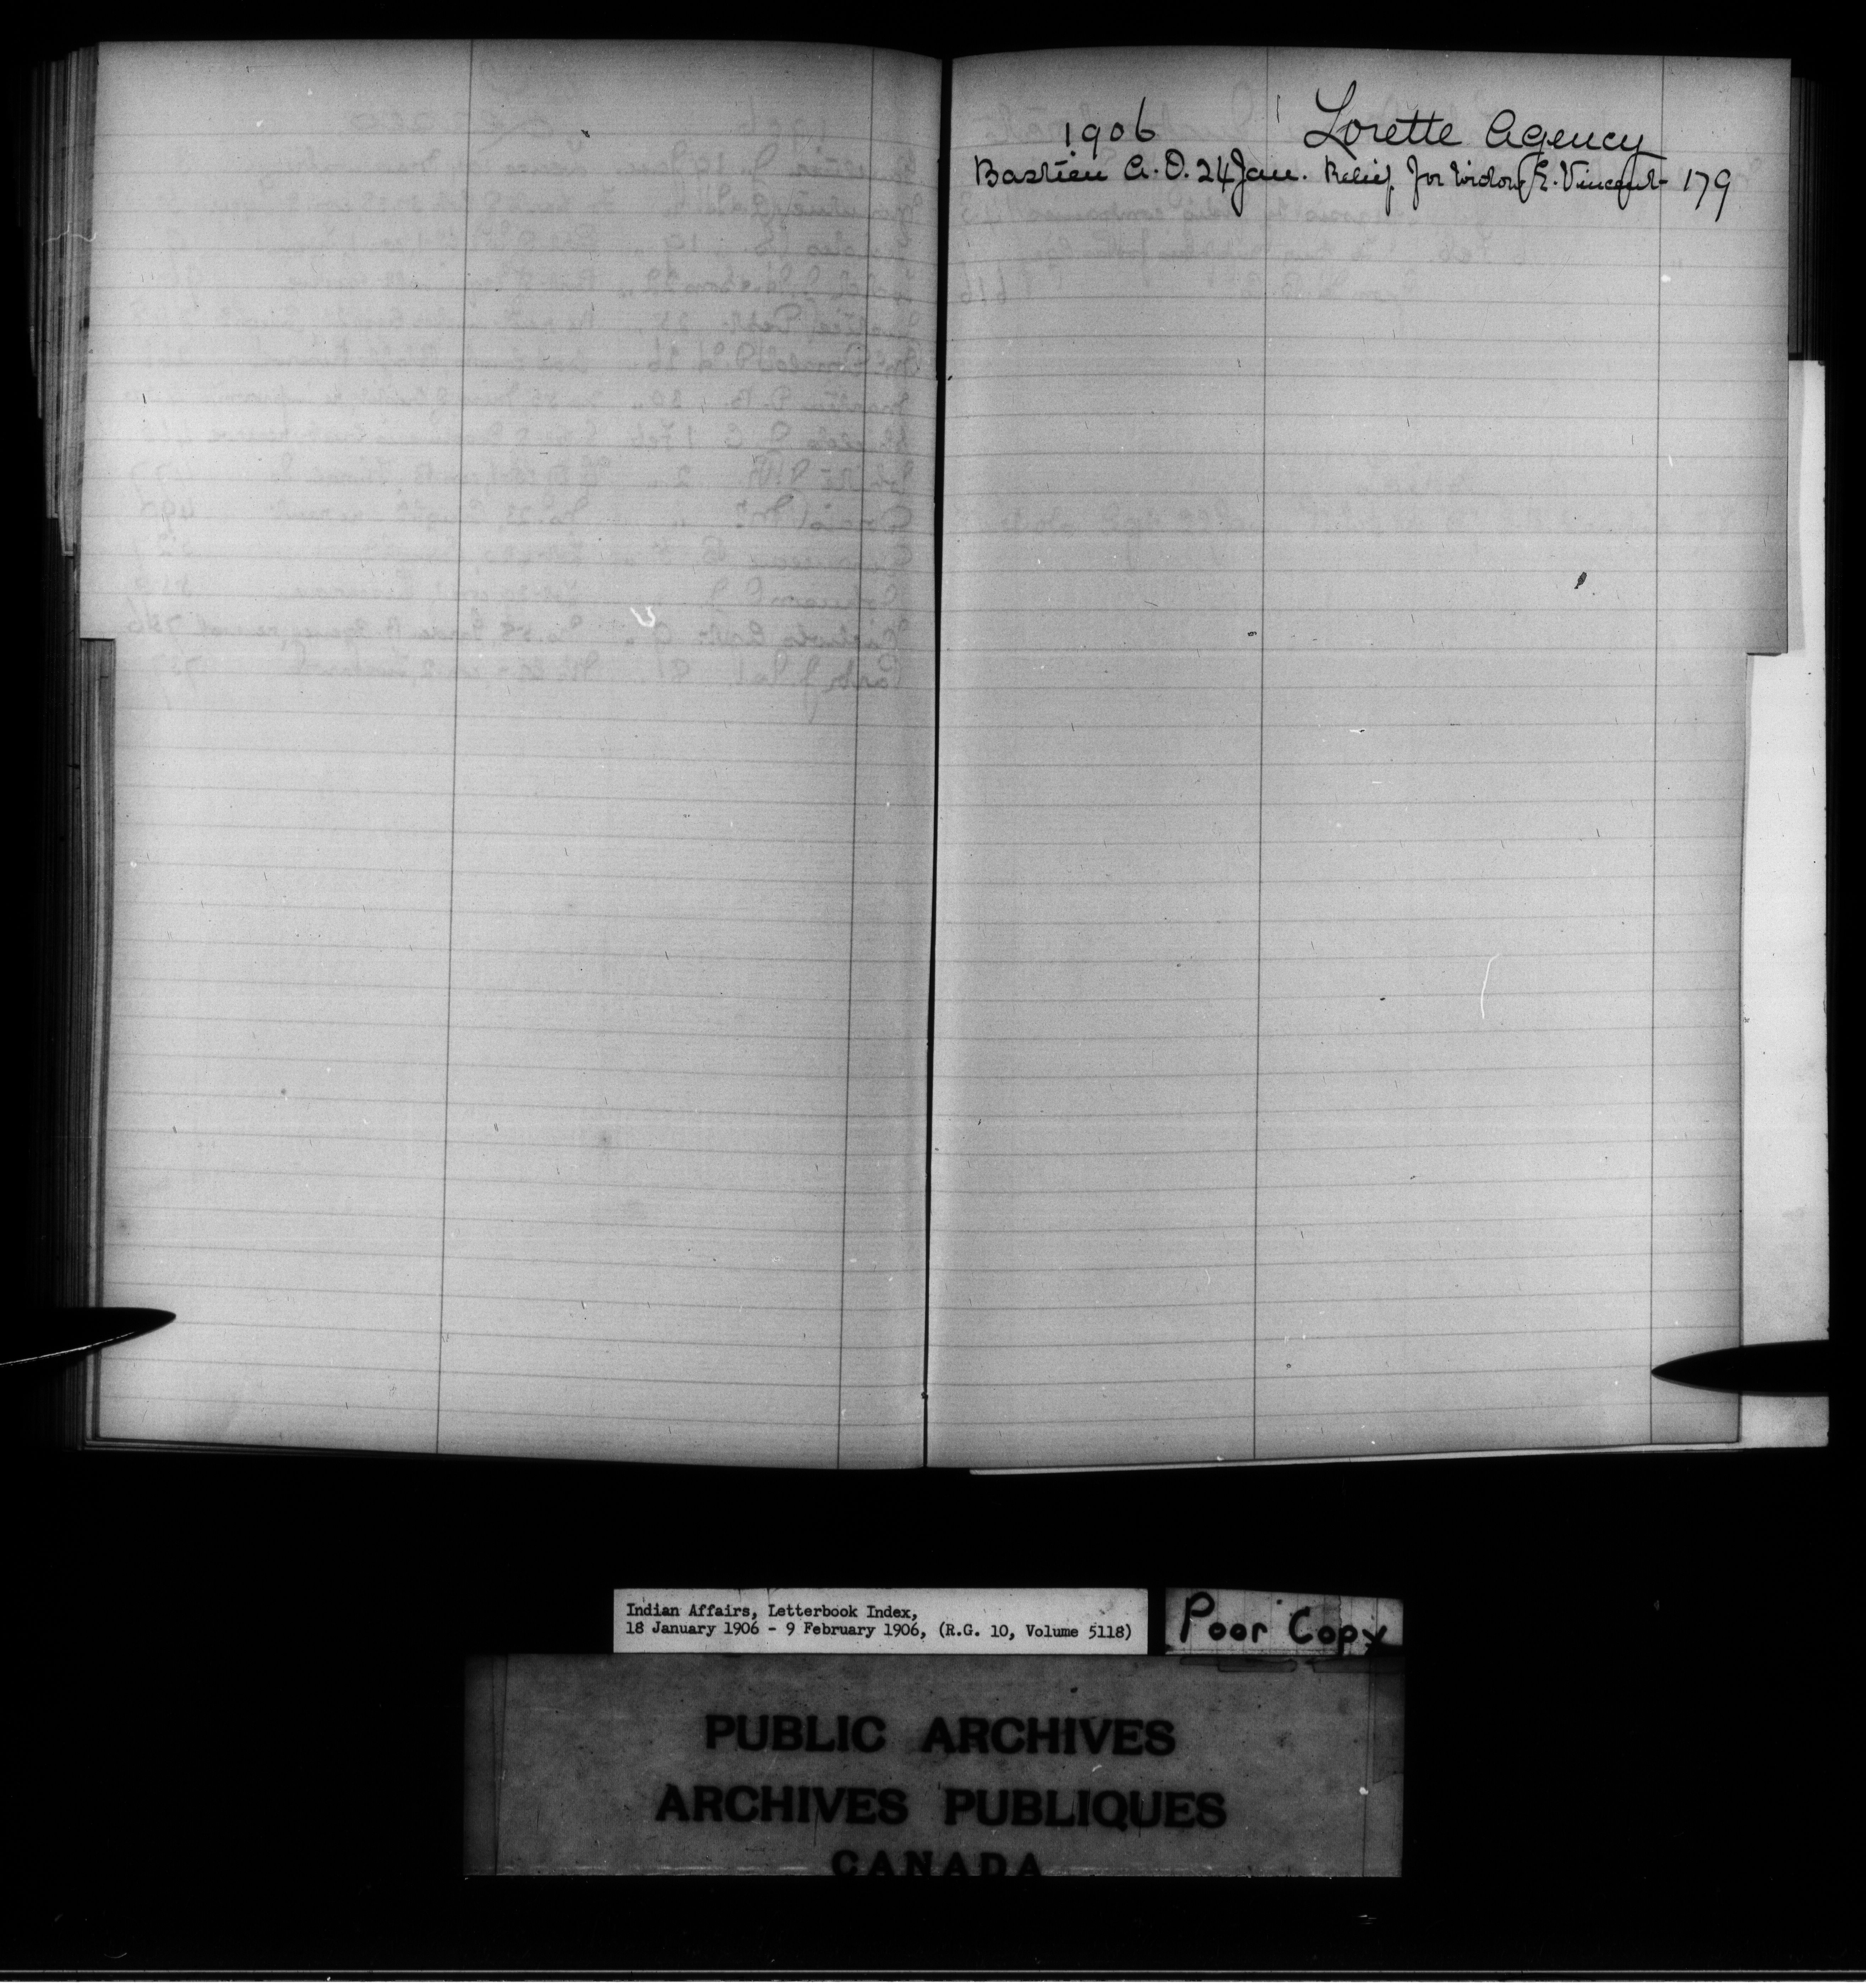 1906 Lorette Agency
Bastien A. O. 24 Jan. Relief for widow E. Vincent 179
Indian Affairs, Letterbook Index,
18 January 1906 - 9 February 1906, (R.G. 10, Volume 5118)
Poor Copy
PUBLIC ARCHIVES
ARCHIVES PUBLIQUES
CANADA